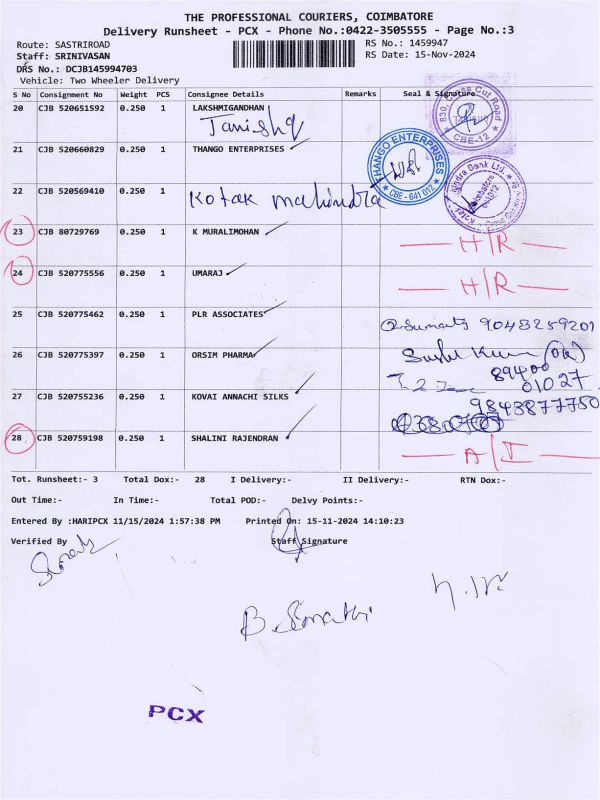 THE PROFESSIONAL COURIERS, COIMBATORE
Delivery Runsheet - PCX - Phone No.:0422-3505555 - Page No.:3
Route: SASTRIROAD RS No.: 1459947
Staff: SRINIVASAN RS Date: 15-Nov-2024
DRS No.: DCJB145994703
Vehicle: Two Wheeler Delivery
S No Consignment No Weight PCS Consignee Details Remarks Seal & Signature
20 CJB 520651592 0.250 1 LAKSHMIGANDHAN
Tanishq
21 CJB 520660829 0.250 1 THANGO ENTERPRISES
THANGO ENTERPRISES
CBE - 641 012
830, Cross Cut Road
CBE-12
22 CJB 520569410 0.250 1
Kotak mahindra
23 CJB 80729769 0.250 1 K MURALIMOHAN H/R
24 CJB 520775556 0.250 1 UMARAJ H/R
25 CJB 520775462 0.250 1 PLR ASSOCIATES 9043259201
26 CJB 520775397 0.250 1 ORSIM PHARMA
89400
01027
27 CJB 520755236 0.250 1 KOVAI ANNACHI SILKS 9843877750
28 CJB 520759198 0.250 1 SHALINI RAJENDRAN A/I
Tot. Runsheet:- 3 Total Dox:- 28 I Delivery:- II Delivery:- RTN Dox:-
Out Time:- In Time:- Total POD:- Delvy Points:-
Entered By :HARIPCX 11/15/2024 1:57:38 PM Printed On: 15-11-2024 14:10:23
Verified By Staff Signature
PCX